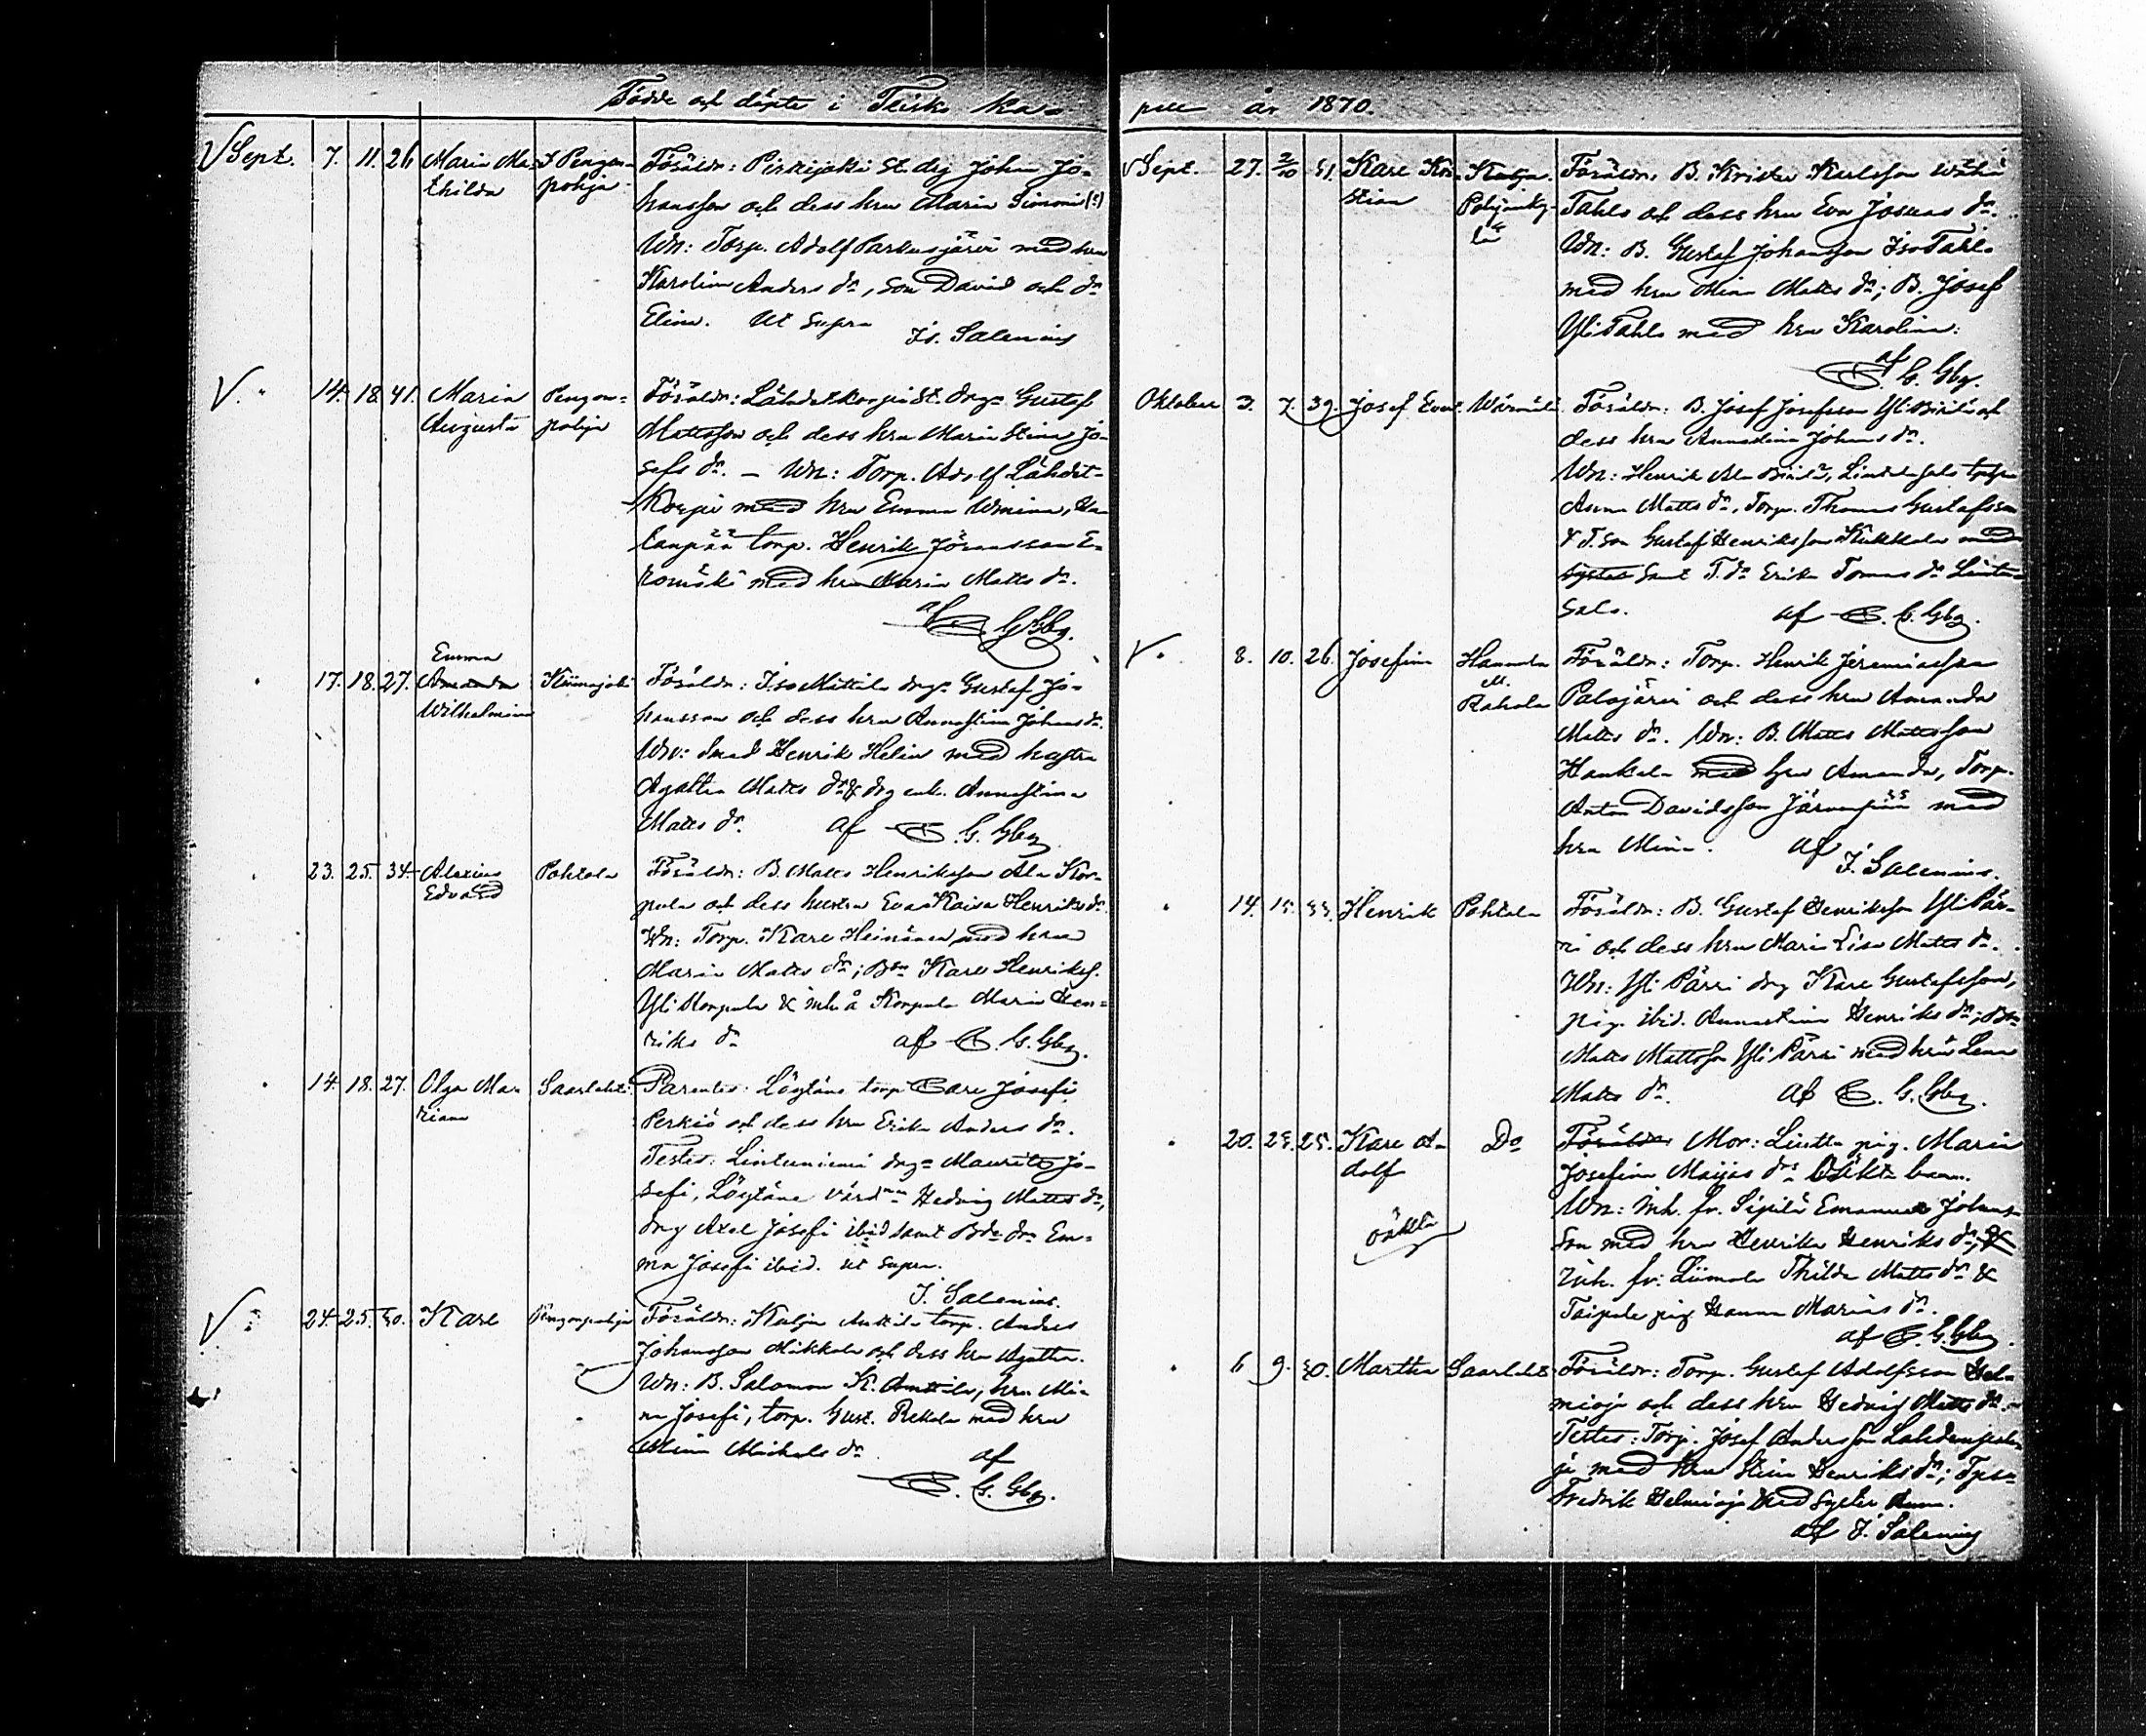 Födde och döpte i Teisko ka-
pell år 1870.
V Sept. 7. 11. 26 Maria Ma- Pengon- Föräldr: Pirkijoki St. drg Johan Jo-
thilda pohja hansson och dess hru Maria Simoni (?)
Wn: Torp. Adolf Parkusjärvi med hru
Karolina Anders dr, son David och dr
Elina. Ut supra Js. Salenius
V. " 14. 18 41. Maria Pengon- Föräldr: Lähdekorpi St. drg Gustaf
Augusta pohja Mattsson och dess hru Maria Stina Jo-
sefs dr. – Wn: Torp. Adolf Lähdet-
korpi med hru Emma Wmina,
langpää torp. Henrik Jöransson E-
romäki med hru Maria Matts dr.
af G. Gbg.
Emma
17. 18. 27. Amanda Kiimajoki Föräldr: Iso Mattila drg Gustaf Jo-
Wilhelmina hansson och dess hru Annastina Johans dr.
Wn: Smed Henrik Helin med hustru
Agatha Matts dr & drg enk. Annastina
Matts dr. af G. Gbg
23. 25. 34. Alexius Pohtola Föräldr: B. Matts Henriksson Ala Kor-
Edvard pula och dess hustru Eva Kaisa Henriks dr.
Wn: Torp. Karl Heinänen med hru
Maria Matts dr; Bsn Karl Henriks.
Yli Korpula & inh. å Korpula Maria Hen-
riks dr af G. Gbg.
14. 18. 27. Olga Ma- Saarlaht. Parentes: Lögtäne torp Carl Josefi
riana Perkiö och dess hru Erika Anders dr.
Testes: Lintuniemi drg Mauritz Jo-
sefi, Lögtäne värd Hedvig Matts dr,
drg Axel Josefi ibid samt Bde dr Em-
ma Josefi ibid. ut supra.
J. Salenius.
V " 24. 25. 30. Karl Pengonpohja Föräldr: Kalja Anttila torp. Anders
Johansson Mikkola och dess hru Agatha.
Wn: B. Salomon K. Anttila, hru Mi-
na Josefi, torp. Gust. Rekola med hru
Mina Michels dr af
G. Gbg.
V Sept. 27. 2/10 31. Karl Kri- Föräldr: B. Krister Karlsson Wähä
stian Pohjanky- Tahlo och dess hru Eva Josuas dr.
lä Wn: B. Gustaf Johansson Iso Tahlo
med hru Mina Matts dr; B. Josef
Yli Tahlo med hru Karolina.
af G. Gbg.
Oktober 3. 7. 39. Josef Evert Wärmälä Föräldr: B. Josef Josefsson Yli och
dess hru Annalina Johans dr.
Wn: Henrik Ala
Anna Matts dr, Torp. Thomas Gustafsson
& T. son Gustaf Henriksson Kukkola med
syster samt T. dr Erika Tomas dr Lintu-
salo. af G. Gbg.
V " 8. 10. 26. Josefina Hannula Föräldr: Torp. Henrik Jeremiasson
M. Rahola Palojärvi och dess hru Amanda
Matts dr. Wn: B. Matts Mattsson
Haukala med hru Amanda, Torp.
Anton Davidsson Järvenpää med
hru Mina. af
J. Salenius.
" 14. 15. 33. Henrik Pohtola Föräldr: B. Gustaf Henriksson Yli Pär-
ri och dess hru Maria Lisa Matts dr.
Wn: Yli Pärri drg Karl Gustafsson,
pig. ibid. Annastina Henriks dr; Bsn
Matts Mattsson Yli Pärri med hru Lena
Matts dr. af G. Gbg.
" 20. 25. 25. Karl A- Do Föräldr: Mor: Liutta pig. Maria
dolf Josefina Maijas dr Oäkta barn.
oäkta Wn: inh. fr. Sipilä Emanuel Johans-
son med hru Henrika Henriks dr, &
inh. fr. Liimola Thilda Matts dr &
Taipale pig Hanna Marias dr.
af G. Gbg.
" 6 9. 30. Martha Saarlaht Föräldr: Torp. Gustaf Adolfsson Hel-
mioja och dess hru Hedvig Matts dr.
Testes: Torp. Josef Andersson Lahdenpoh-
ja med hru Stina Henriks dr; Tpsn
Fredrik Helmioja med syster Anna.
af J. Salenius